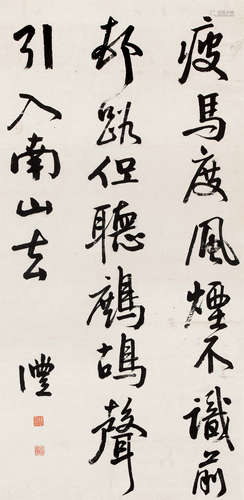 瘦馬度風煙不識前
邨路但聽鷓鴣聲
引入南山去
灃